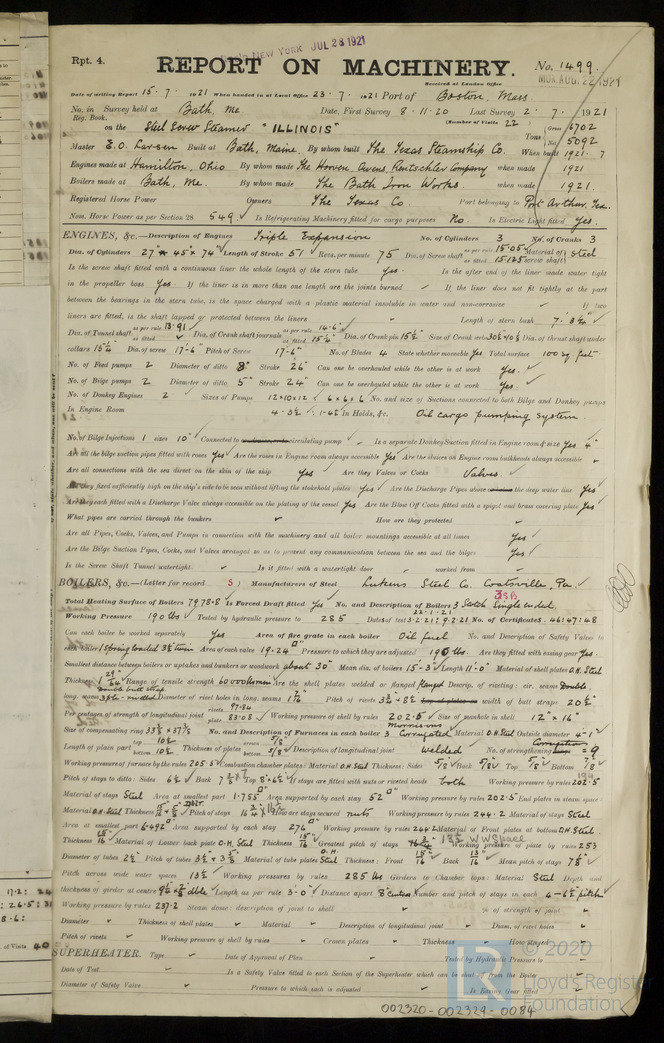 NEW YORK JUL 28 1921
Rpt. 4.
REPORT ON MACHINERY.
No. 1499.
MON. AUG. 22 1921
Received at London Office
Date of writing Report 15. 7. 1921 When handed in at Local Office 23. 7. 1921 Port of Boston, Mass.
No. in Reg. Book. Survey held at Bath, Me. Date, First Survey 8-11-20 Last Survey 2. 7. 1921
(Number of Visits 22)
on the Steel Screw Steamer "ILLINOIS" Tons Gross 6702 Net 5092
Master E.O. Larsen Built at Bath, Maine. By whom built The Texas Steamship Co. When built 1921. 7
Engines made at Hamilton, Ohio By whom made The Hooven, Owens, Rentschler Company when made 1921
Boilers made at Bath, Me. By whom made The Bath Iron Works. when made 1921.
Registered Horse Power Owners The Texas Co. Port belonging to Port Arthur, Tex.
Nom. Horse Power as per Section 28 549 Is Refrigerating Machinery fitted for cargo purposes No. Is Electric Light fitted Yes.
ENGINES, &c.—Description of Engines Triple Expansion No. of Cylinders 3 No. of Cranks 3
Dia. of Cylinders 27" 45" x 74" Length of Stroke 51 Revs. per minute 75 Dia. of Screw shaft as per rule 15.05 as fitted 15.125 Material of screw shaft Steel
Is the screw shaft fitted with a continuous liner the whole length of the stern tube Yes. Is the after end of the liner made water tight
in the propeller boss Yes. If the liner is in more than one length are the joints burned If the liner does not fit tightly at the part
between the bearings in the stern tube, is the space charged with a plastic material insoluble in water and non-corrosive If two
liners are fitted, is the shaft lapped or protected between the liners Length of stern bush 7'-3¼"
Dia. of Tunnel shaft as per rule 13.91 as fitted Dia. of Crank shaft journals as per rule 14.6 as fitted 15¼" Dia. of Crank pin 15½" Size of Crank webs 30½x10½ Dia. of thrust shaft under
collars 15¼" Dia. of screw 17'-6" Pitch of Screw 17'-6" No. of Blades 4 State whether moveable Yes Total surface 100 sq. feet
No. of Feed pumps 2 Diameter of ditto 8" Stroke 26" Can one be overhauled while the other is at work Yes.
No. of Bilge pumps 2 Diameter of ditto 5" Stroke 24" Can one be overhauled while the other is at work Yes.
No. of Donkey Engines 2 Sizes of Pumps 12x10x12 6x6x6 No. and size of Suctions connected to both Bilge and Donkey pumps
In Engine Room 4-3½. 1-4½ In Holds, &c. Oil cargo pumping system.
No. of Bilge Injections 1 sizes 10" Connected to circulating pump Is a separate Donkey Suction fitted in Engine room & size Yes 4"
Are all the bilge suction pipes fitted with roses Yes Are the roses in Engine room always accessible Yes Are the sluices on Engine room bulkheads always accessible
Are all connections with the sea direct on the skin of the ship Yes Are they Valves or Cocks Valves
Are they fixed sufficiently high on the ship's side to be seen without lifting the stokehold plates Yes Are the Discharge Pipes above the deep water line Yes
Are they each fitted with a Discharge Valve always accessible on the plating of the vessel Yes Are the Blow Off Cocks fitted with a spigot and brass covering plate Yes
What pipes are carried through the bunkers How are they protected
Are all Pipes, Cocks, Valves, and Pumps in connection with the machinery and all boiler mountings accessible at all times Yes
Are the Bilge Suction Pipes, Cocks, and Valves arranged so as to prevent any communication between the sea and the bilges Yes
Is the Screw Shaft Tunnel watertight Is it fitted with a watertight door worked from
BOILERS, &c.—(Letter for record S) Manufacturers of Steel Lukens Steel Co. Coatsville, Pa.
3SB
Total Heating Surface of Boilers 7978.8 Is Forced Draft fitted Yes No. and Description of Boilers 3 Scotch Single ended.
Working Pressure 190 lbs Tested by hydraulic pressure to 285 Date of test 22.1.21 3.2.21; 9.2.21 No. of Certificates 46:47:48
Can each boiler be worked separately Yes Area of fire grate in each boiler Oil fuel No. and Description of Safety Valves to
each boiler 1 Spring loaded 3½ twin Area of each valve 19.24 Pressure to which they are adjusted 190 lbs. Are they fitted with easing gear Yes.
Smallest distance between boilers or uptakes and bunkers or woodwork about 30" Mean dia. of boilers 15-3" Length 11-0" Material of shell plates O.H. Steel
Thickness 1 29/64 Range of tensile strength 60000 Are the shell plates welded or flanged flanged Descrip. of riveting: cir. seams Double,
long. seams Double butt strap 3ple-riveted Diameter of rivet holes in long. seams Pitch of rivets width of butt straps 20½"
Per centages of strength of longitudinal joint rivets 97.84 plate 83.08 Working pressure of shell by rules 202.5 Size of manhole in shell 12" x 16"
Size of compensating ring No. and Description of Furnaces in each boiler 3 Morrison Corrugated Material O.H. Steel Outside diameter 4-1"
Length of plain part top 10½ bottom 10½ Thickness of plates 5/8" 5/8" Description of longitudinal joint welded No. of strengthening Corrugations = 9
Working pressure of furnace by the rules 205.5 Combustion chamber plates: Material O.H. Steel Thickness: Sides 5/8 Back 5/8 Top 5/8 Bottom 7/8
Pitch of stays to ditto: Sides 6½ Back Top If stays are fitted with nuts or riveted heads both Working pressure by rules 202.5
Material of stays Steel Area at smallest part 1.755 Area supported by each stay 52 Working pressure by rules 202.5 End plates in steam space:
Material O.H. Steel Thickness Pitch of stays How are stays secured nuts Working pressure by rules 244.2 Material of stays Steel
Area at smallest part 6.492 Area supported by each stay 276 Working pressure by rules 244.2 Material of Front plates at bottom O.H. Steel.
Thickness 15/16 Material of Lower back plate O.H. Steel Thickness 15/16 Greatest pitch of stays Working pressure of plate by rules 253
Diameter of tubes 2½" Pitch of tubes Material of tube plates Steel Thickness: Front 15/16 Back 13/16 Mean pitch of stays
Pitch across wide water spaces 13½ Working pressures by rules 285 lbs Girders to Chamber tops: Material Steel Depth and
thickness of girder at centre Length as per rule 3-0" Distance apart 8" centres Number and pitch of stays in each 4-6½ pitch
Working pressure by rules 237.2 Steam dome: description of joint to shell % of strength of joint
Diameter Thickness of shell plates Material Description of longitudinal joint Diam. of rivet holes
Pitch of rivets Working pressure of shell by rules Crown plates Thickness How stayed
SUPERHEATER. Type Date of Approval of Plan Tested by Hydraulic Pressure to
Date of Test Is a Safety Valve fitted to each Section of the Superheater which can be shut from the Boiler
Diameter of Safety Valve Pressure to which each is adjusted Is Easing Gear fitted
© 2020
Lloyd's Register
Foundation
002320-002329-0084